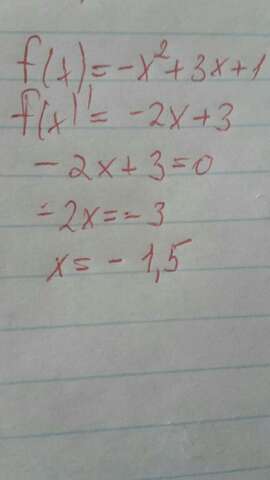 f(x)=-x²+3x+1
f(x)'=-2x+3
-2x+3=0
-2x=-3
x=-1,5